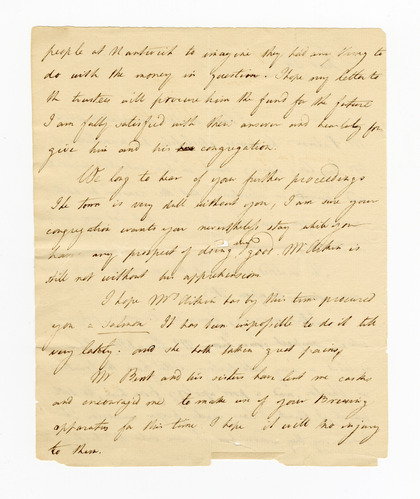 people at Nantwich to imagine they had any thing to
do with the money in question. I hope my letter to
the trustees will procure him the fund for the future
I am fully satisfied with their answer and heartily for
give him and his congregation.
We long to hear of your further proceedings
The town is very dull without you, I am sure your
congregation wants you nevertheless stay while you
have any prospect of doing good Mr Aikin is
still not without his apprehensions
I hope Mrs Aikin has by this time procured
you a salmon It has been impossible to do it till
very lately. and she hath taken great pains,
Mr Bent and his sisters have lent me casks
and encouraged me to make use of your Brewing
apparatus for this time I hope it will no injury
to them.